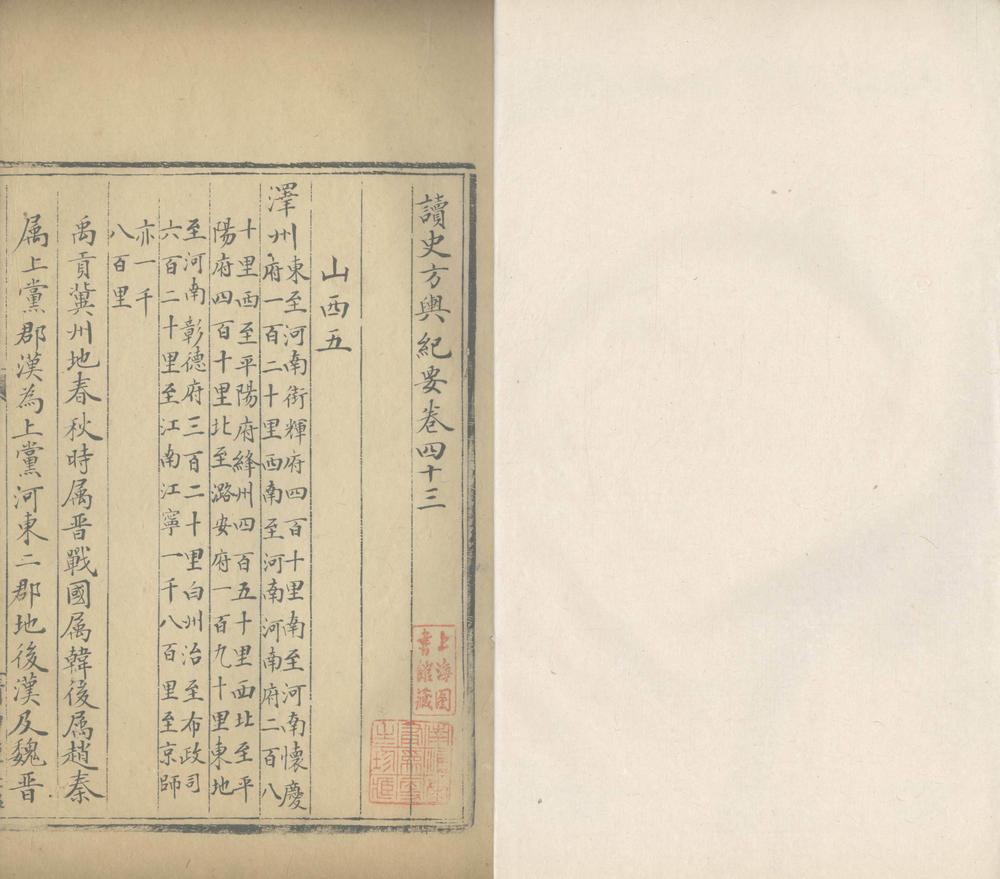 讀史方輿紀要卷四十三
山西五
澤州東至河南衛輝府四百十里南至河南懷慶
府一百二十里西南至河南河南府二百八
十里西至平陽府絳州四百五十里西北至平
陽府四百十里北至潞安府一百九十里東北
至河南彰德府三百二十里自州治至布政司
六百二十里至江南江寧一千八百里至京師
亦一千
八百里
禹貢冀州地春秋時属晋戰國属韓後属趙秦
属上黨郡漢為上黨河東二郡地後漢及魏晋
上海圖
書館藏